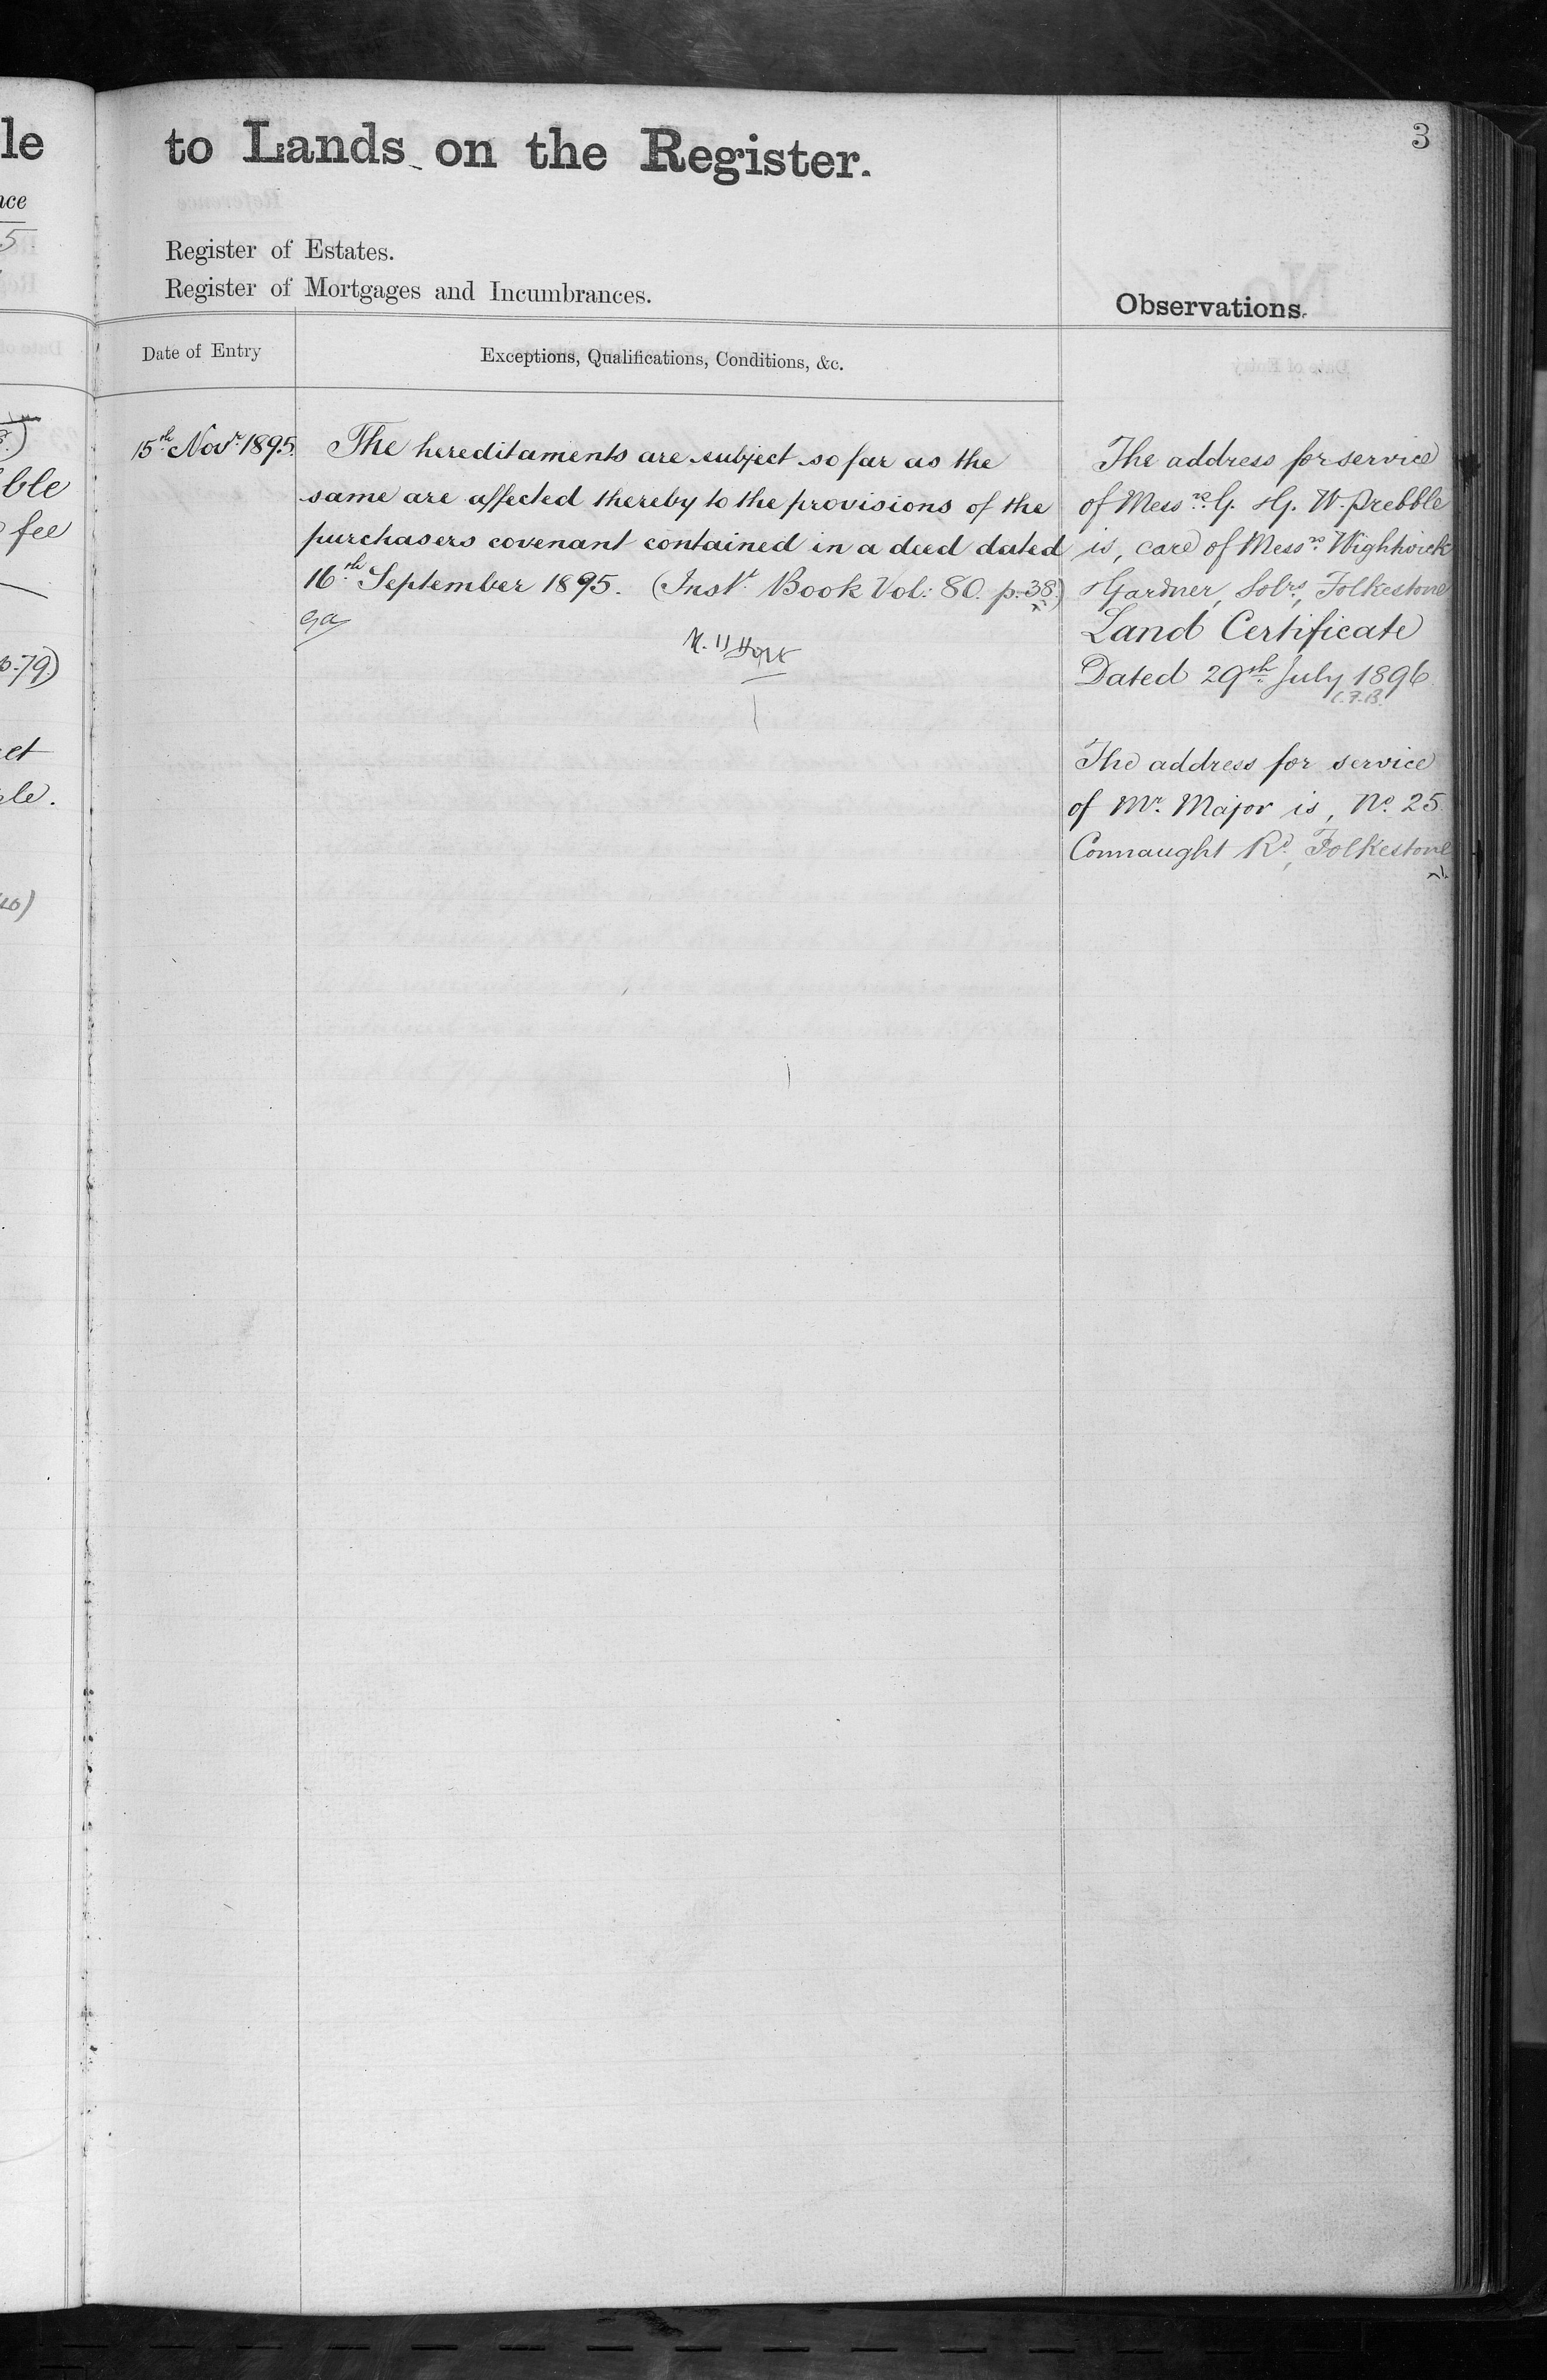 to Lands on the Register.
3
Register of Estates.
Register of Mortgages and Incumbrances.
Observations.
Date of Entry
Exceptions, Qualifications, Conditions, &c.
15th Novr. 1895.
The hereditaments are subject so far as the
same are affected thereby to the provisions of the
purchasers covenant contained in a deed dated
16th September 1895. (Inst. Book Vol: 80. p. 38.)
The address for service
of Messrs. G. & G. W. Prebble
is, care of Messrs. Wightwick
& Gardner, Solrs, Folkestone
Land Certificate
Dated 29th July 1896
C.F.B.
The address for service
of Mr. Major is, No. 25
Connaught Rd, Folkestone
le
nce
5
ble
fee
p. 79)
ct
ble.